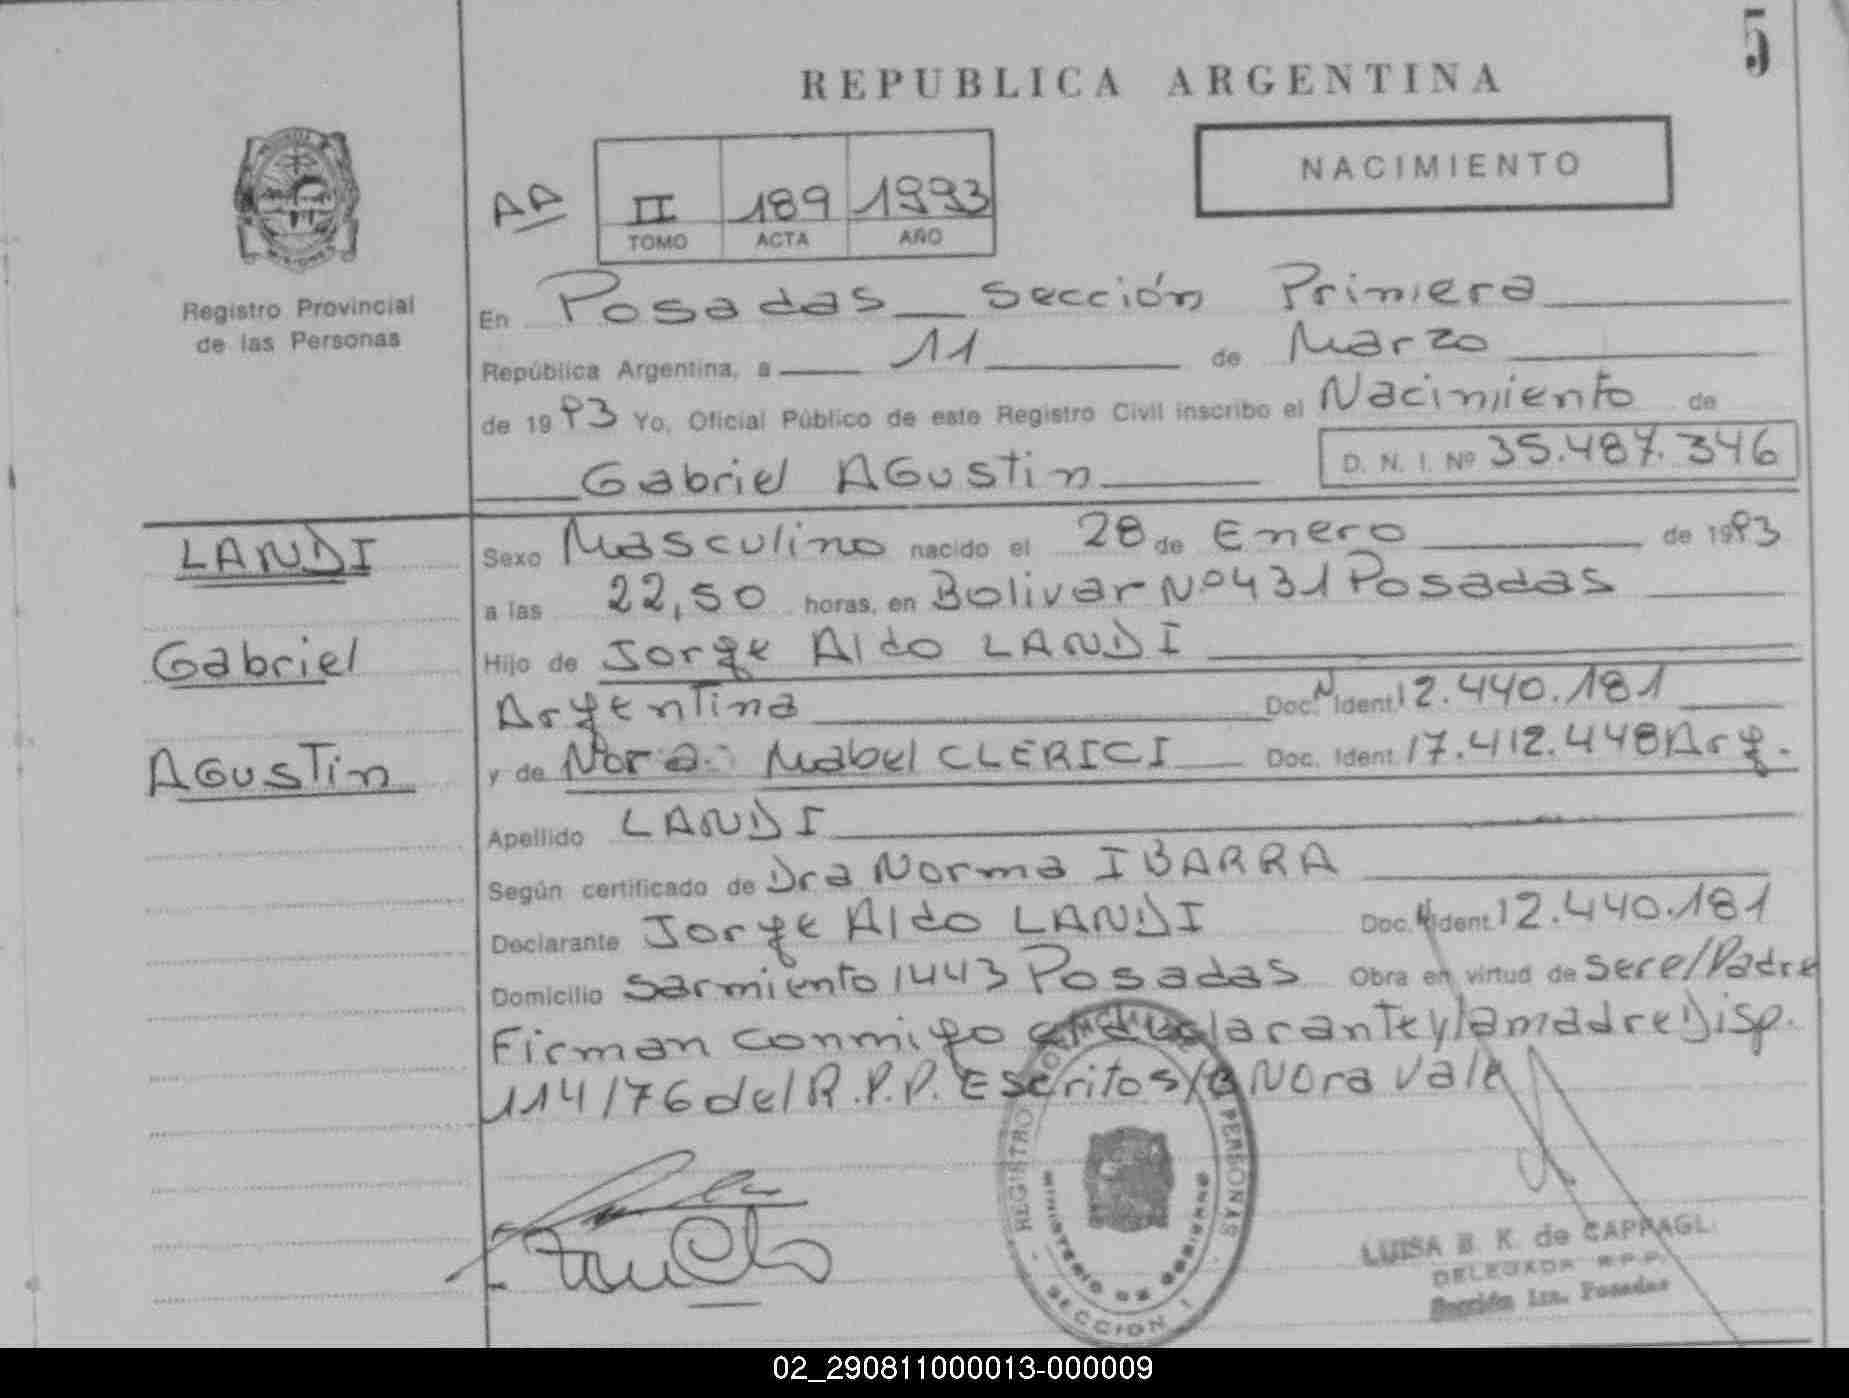 5
REPUBLICA ARGENTINA
NACIMIENTO
AA
II 189 1993
TOMO ACTA AÑO
Registro Provincial
de las Personas
En Posadas sección Primera
República Argentina, a 11 de Marzo
de 1993 Yo, Oficial Público de este Registro Civil inscribo el Nacimiento de
Gabriel AGustin D. N. I. Nº 35.487.346
LANDI
Gabriel
AGusTin
Sexo Masculino nacido el 28 de Enero de 1993
a las 22,50 horas, en Bolivar Nº 431 Posadas
Hijo de Jorge Aldo LANDI
Argentina Doc. N Ident 12.440.181
y de Nora Mabel CLERICI Doc. Ident 17.412.448 Arg.
Apellido LANDI
Según certificado de Dra Norma IBARRA
Declarante Jorge Aldo LANDI Doc. N Ident 12.440.181
Domicilio Sarmiento 1443 Posadas Obra en virtud de ser el Padre
Firman conmigo el declarante y la madre Disp.
114/76 del R.P.P. Escrito s/ Nora Vale
REGISTRO PROVINCIAL PERSONAS
MINISTERIO DE GOBIERNO
SECCION 1
LUISA B. K. de CAPPAGLI
DELEGADA R.P.P.
Sección 1ra. Posadas
02_290811000013-000009